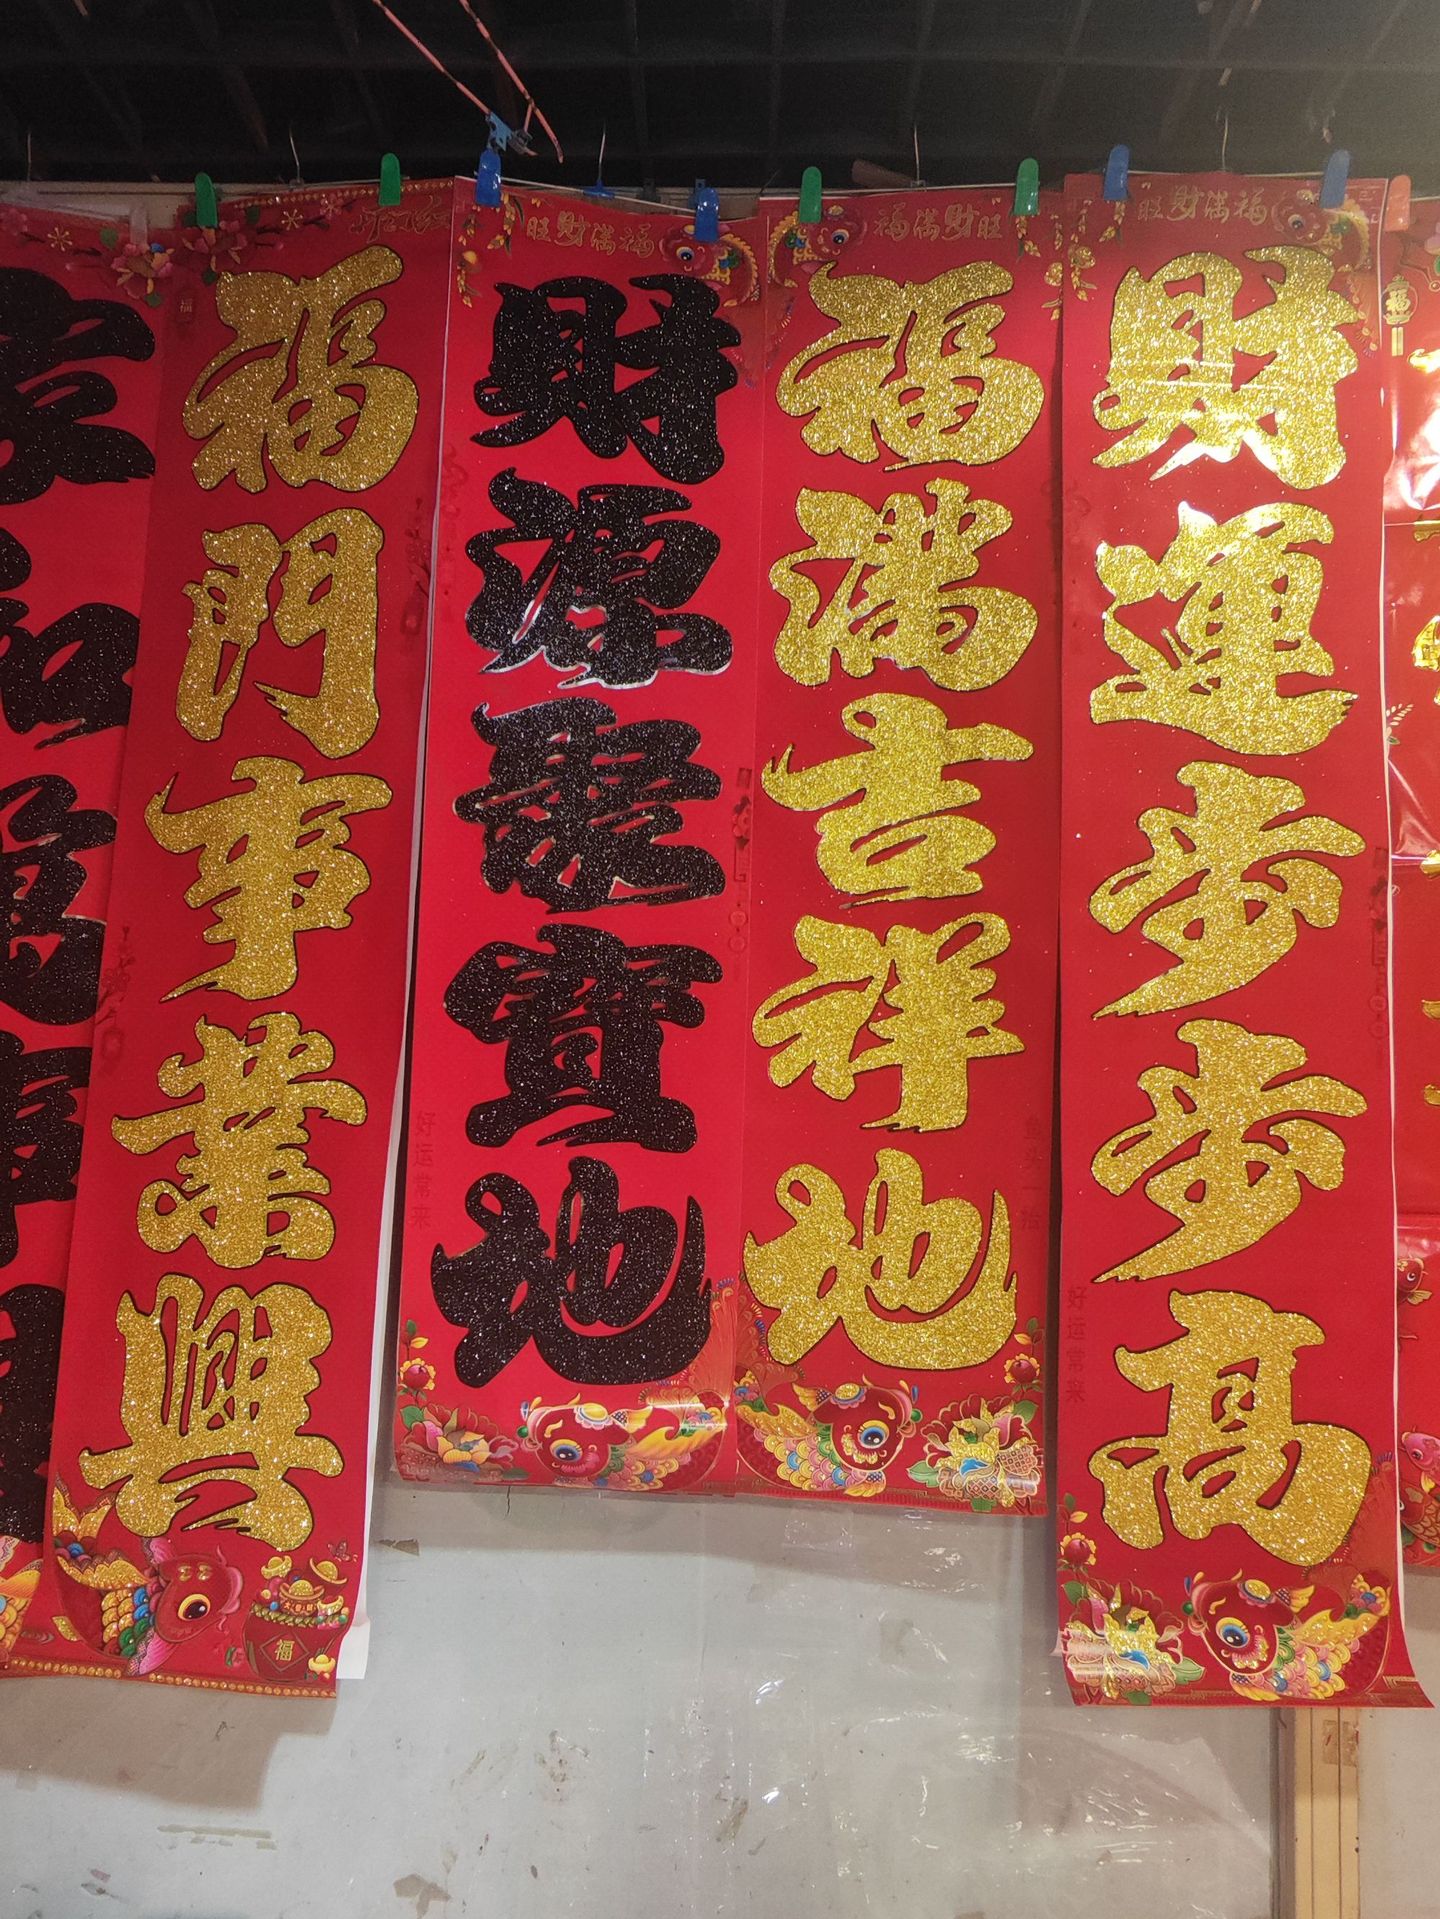 福門事業興
旺財滿福
財源聚寶地
好运常来
福滿財旺
福滿吉祥地
旺財滿福
財運步步高
好运常来
福
福